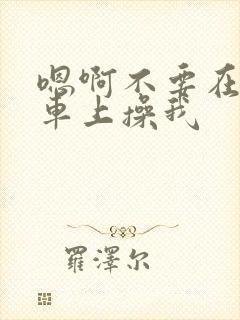 嗯啊不要在
車上操我
羅澤尔